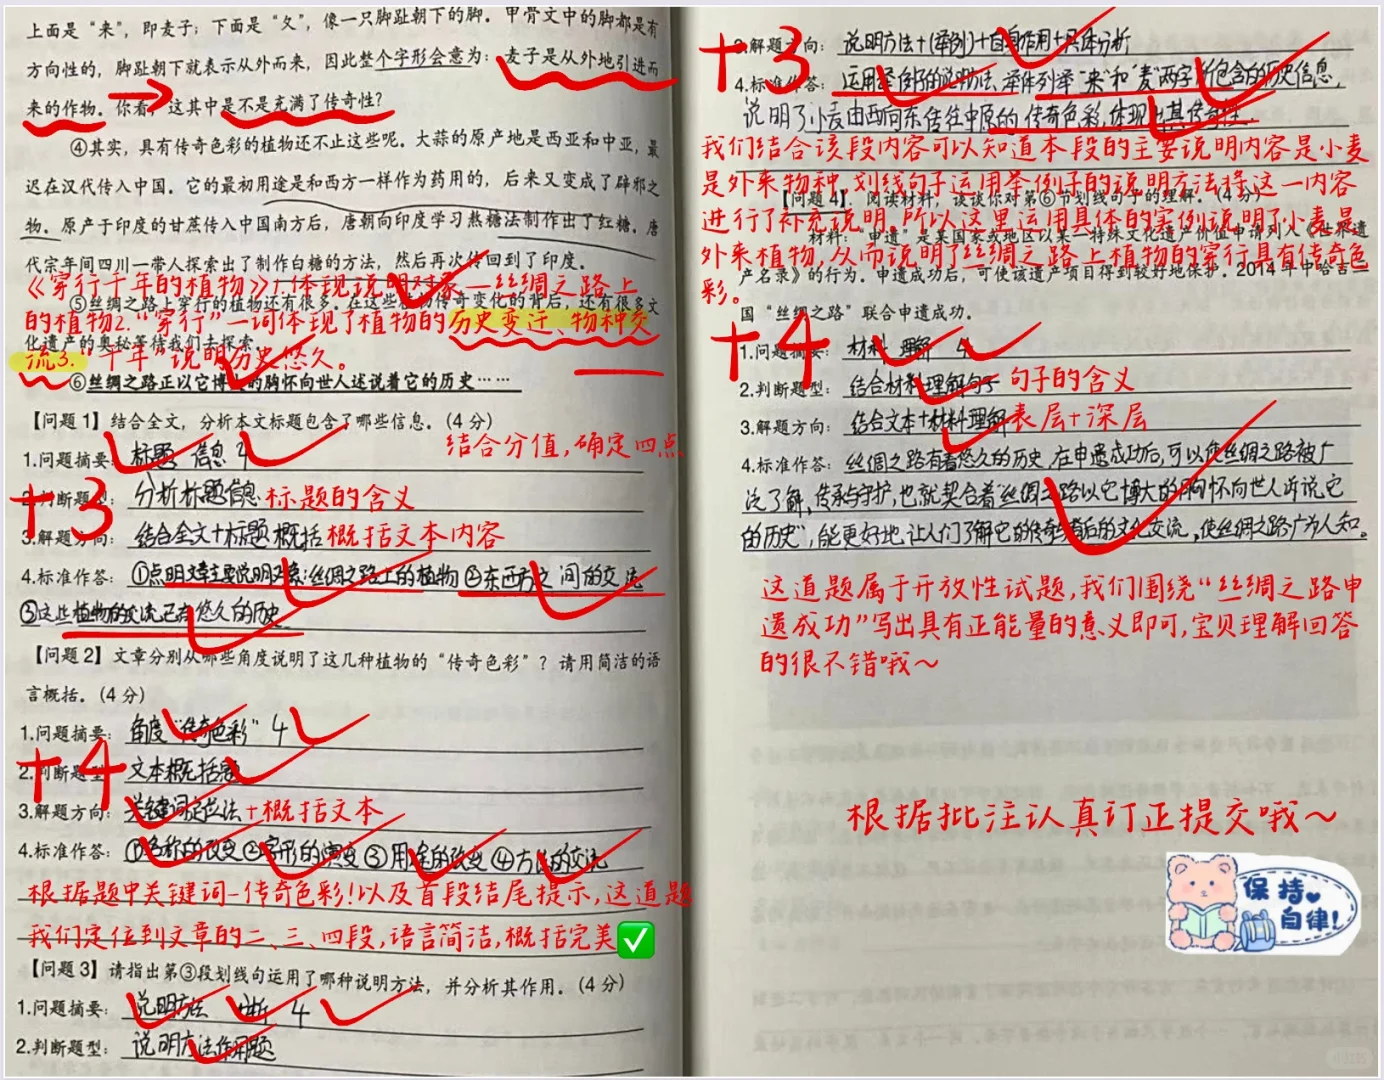 上面是“来”，即麦子；下面是“夂”，像一只脚趾朝下的脚。甲骨文中的脚都是有
方向性的，脚趾朝下就表示从外而来，因此整个字形会意为：麦子是从外地引进而
来的作物。你看，这其中是不是充满了传奇性？
④其实，具有传奇色彩的植物还不止这些呢。大蒜的原产地是西亚和中亚，最
迟在汉代传入中国。它的最初用途是和西方一样作为药用的，后来又变成了辟邪之
物。原产于印度的甘蔗传入中国南方后，唐朝向印度学习熬糖法制作出了红糖。唐
代宗年间四川一带人探索出了制作白糖的方法，然后再次传回到了印度。
《穿行千年的植物》1.体现说明对象—丝绸之路上
⑤丝绸之路上穿行的植物还有很多。在这些植物传奇变化的背后，还有很多文
的植物2.“穿行”一词体现了植物的历史变迁、物种交
化遗产的奥秘等待我们去探索。
流3.“千年”说明历史悠久。
⑥丝绸之路正以它博大的胸怀向世人述说着它的历史……
【问题1】结合全文，分析本文标题包含了哪些信息。(4分)
结合分值，确定四点
1.问题摘要：标题 信息 4
+3
2.判断题型：分析标题信息 标题的含义
3.解题方向：结合全文+标题概括 概括文本内容
4.标准作答：①点明文章主要说明对象：丝绸之路上的植物②东西方之间的交流
③这些植物的交流已有悠久的历史
【问题2】文章分别从哪些角度说明了这几种植物的“传奇色彩”？请用简洁的语
言概括。(4分)
1.问题摘要：角度“传奇色彩” 4
+4
2.判断题型：文本概括题
3.解题方向：关键词定位法+概括文本
4.标准作答：①名称的改变②字形的演变③用途的改变④方法的交流
根据题中关键词-传奇色彩!以及首段结尾提示，这道题
我们定位到文章的二、三、四段，语言简洁，概括完美✅
【问题3】请指出第③段划线句运用了哪种说明方法，并分析其作用。(4分)
1.问题摘要：说明方法 4
2.判断题型：说明方法作用题
+3
3.解题方向：说明方法+(举例)+自身作用+具体分析
4.标准作答：运用举例子的说明方法，举例列举“来”和“麦”两字所包含的历史信息，
说明了小麦由西向东传往中原的传奇色彩，体现出其传奇性。
我们结合该段内容可以知道本段的主要说明内容是小麦
是外来物种，划线句子运用举例子的说明方法将这一内容
【问题4】阅读材料，谈谈你对第⑥节划线句子的理解。(4分)
进行了补充说明。所以这里运用具体的实例说明了小麦是
材料：“申遗”是某国家或地区以某一特殊文化遗产价值申请列入《世界遗
外来植物，从而说明了丝绸之路上植物的穿行具有传奇色
产名录》的行为。申遗成功后，可使该遗产项目得到较好地保护。2014年中哈吉三
彩。
国“丝绸之路”联合申遗成功。
+4
1.问题摘要：材料 理解 4
2.判断题型：结合材料理解句子 句子的含义
3.解题方向：结合文本+材料理解 表层+深层
4.标准作答：丝绸之路有着悠久的历史，在申遗成功后，可以使丝绸之路被广
泛了解，传承与守护，也就契合着“丝绸之路以它博大的胸怀向世人诉说它
的历史”，能更好地让人们了解它的传奇背后的文化交流，使丝绸之路广为人知。
这道题属于开放性试题，我们围绕“丝绸之路申
遗成功”写出具有正能量的意义即可，宝贝理解回答
的很不错哦～
根据批注认真订正提交哦～
保持
自律！